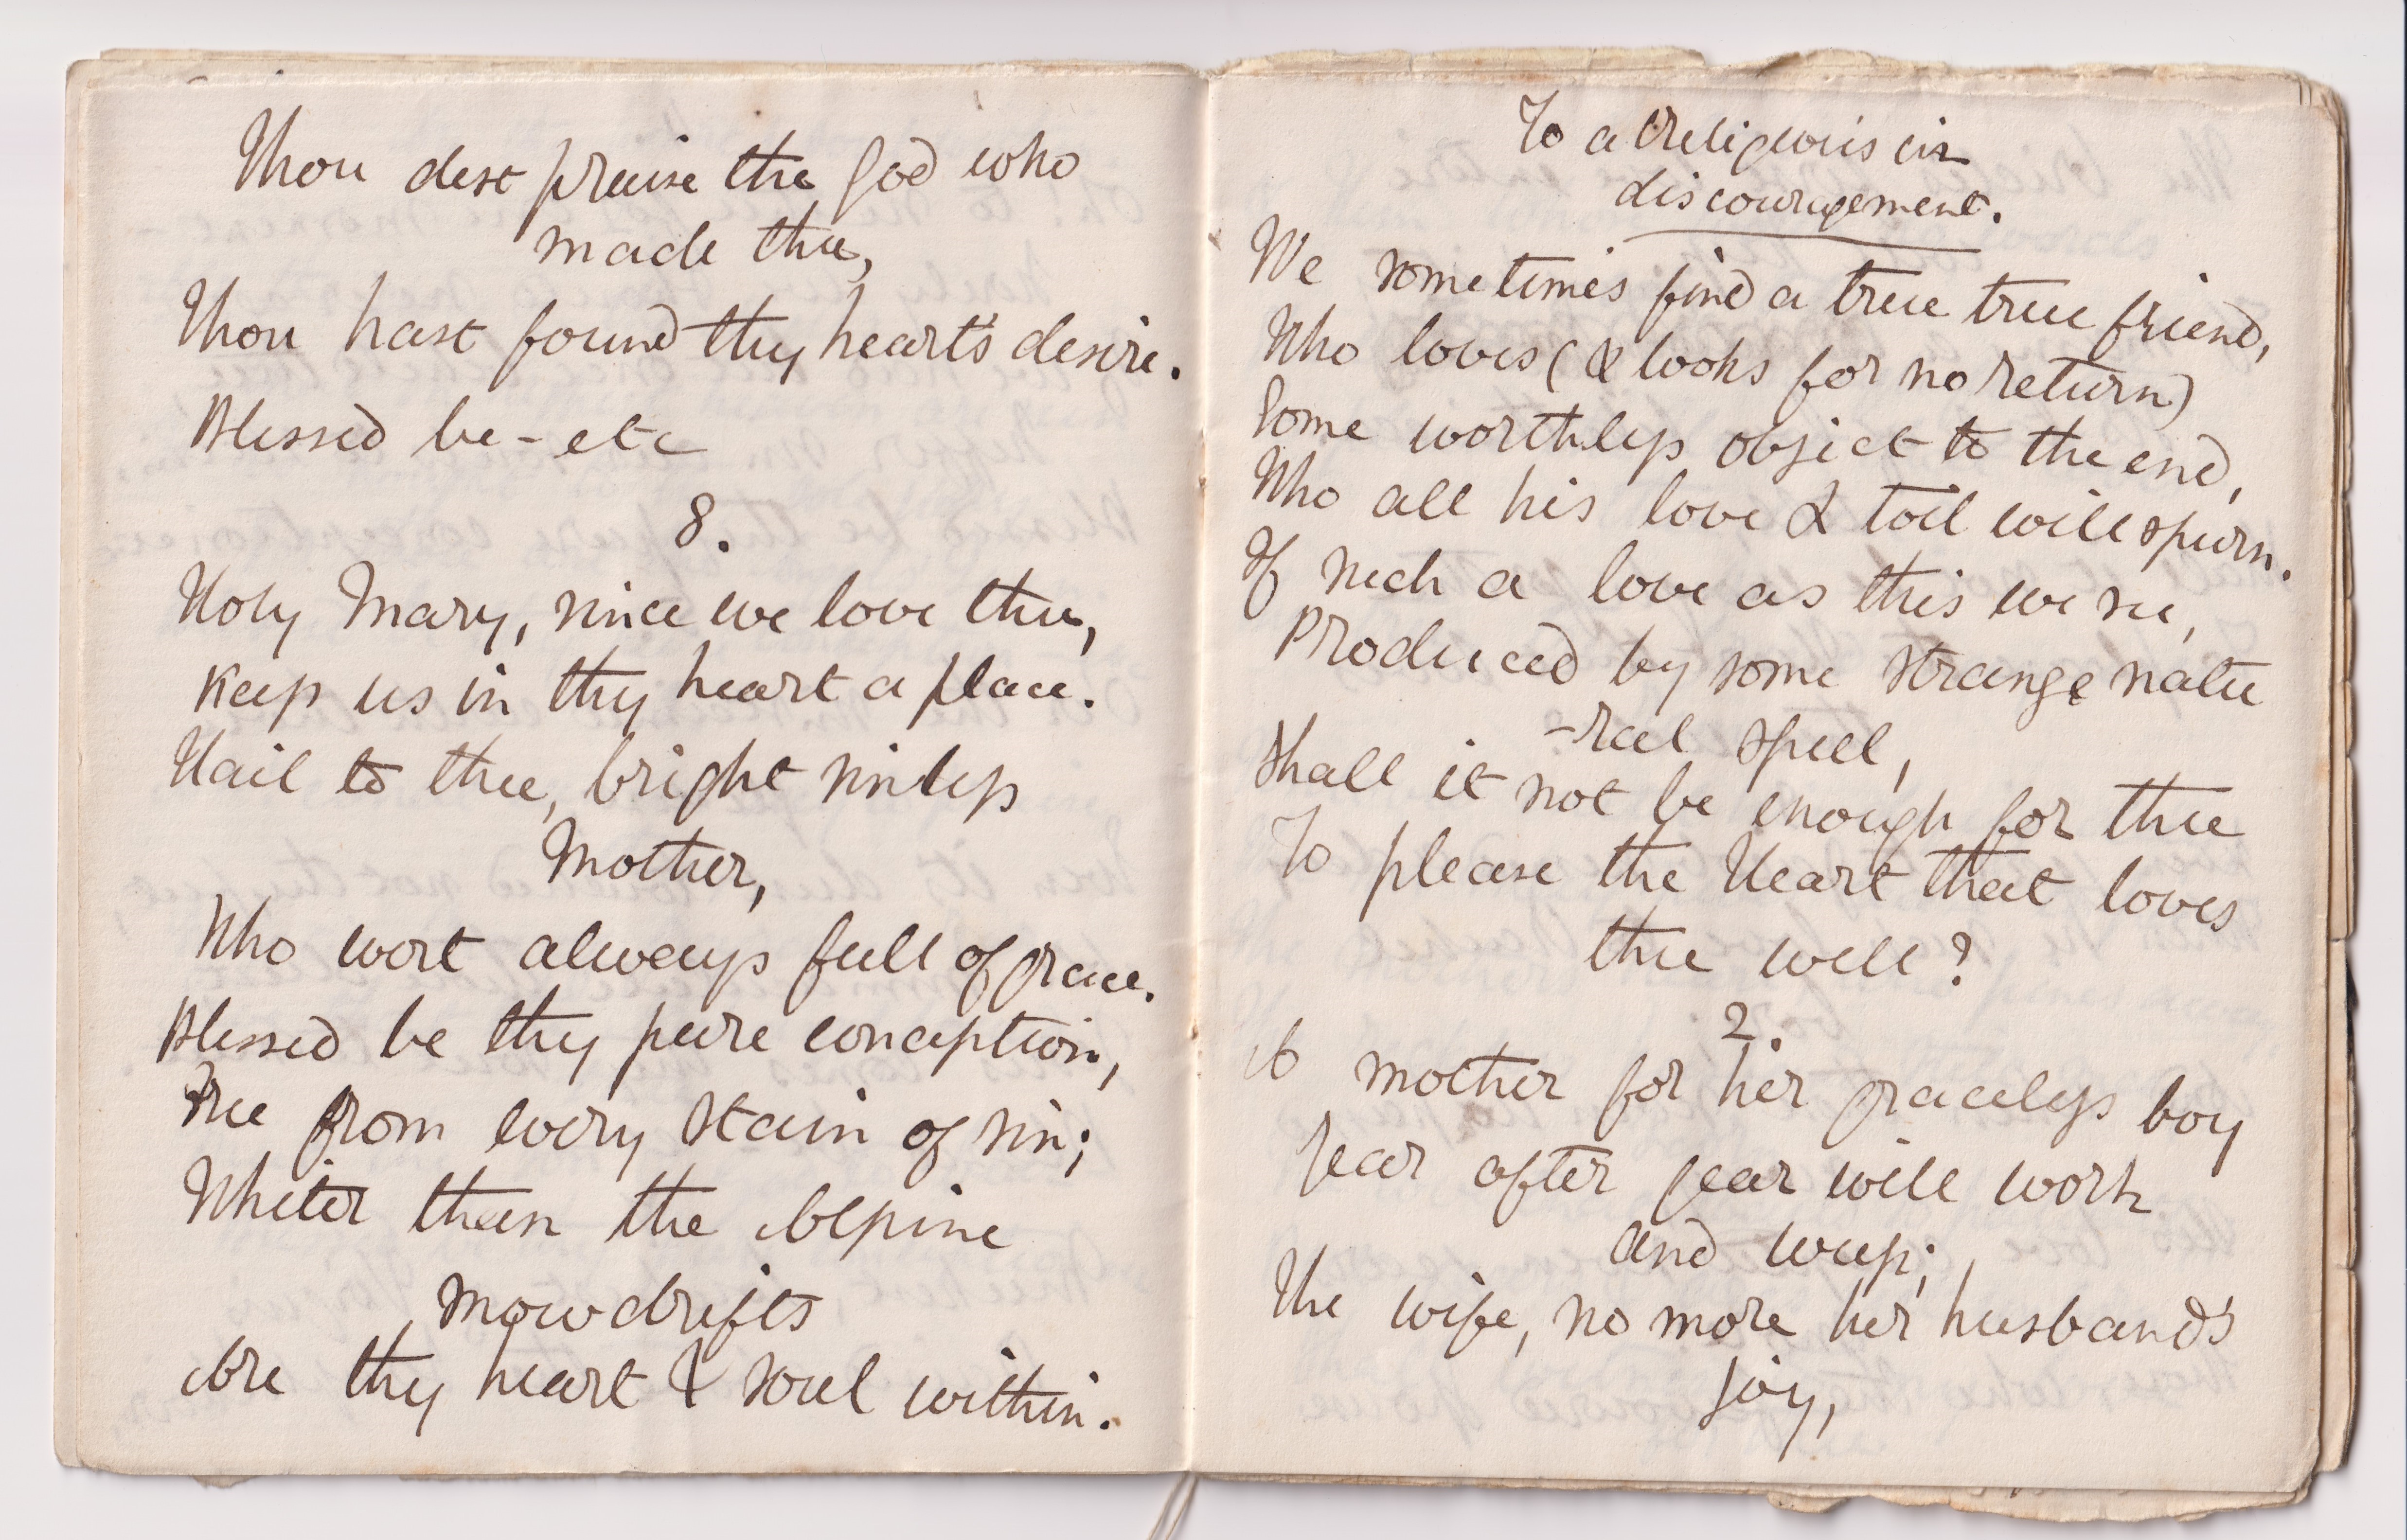 Thou dost praise the God who
made thee,
Thou hast found thy heart's desire.
Blessed be - etc
8.
Holy Mary, since we love thee,
Keep us in thy heart a place.
Hail to thee, bright sinless
Mother,
Who wert always full of grace.
Blessed be thy pure conception,
Free from every stain of sin;
Whiter than the Alpine
snowdrifts
Are thy heart & soul within.
To a religious in
discouragement.
We sometimes find a true true friend,
Who loves (& looks for no return)
Some worthless object to the end,
Who all his love & toil will spurn.
If such a love as this we see,
Produced by some strange natu
-ral spell,
Shall it not be enough for thee
To please the Heart that loves
thee well?
2.
A mother for her graceless boy
Year after year will work
and weep;
The wife, no more her husband's
joy,